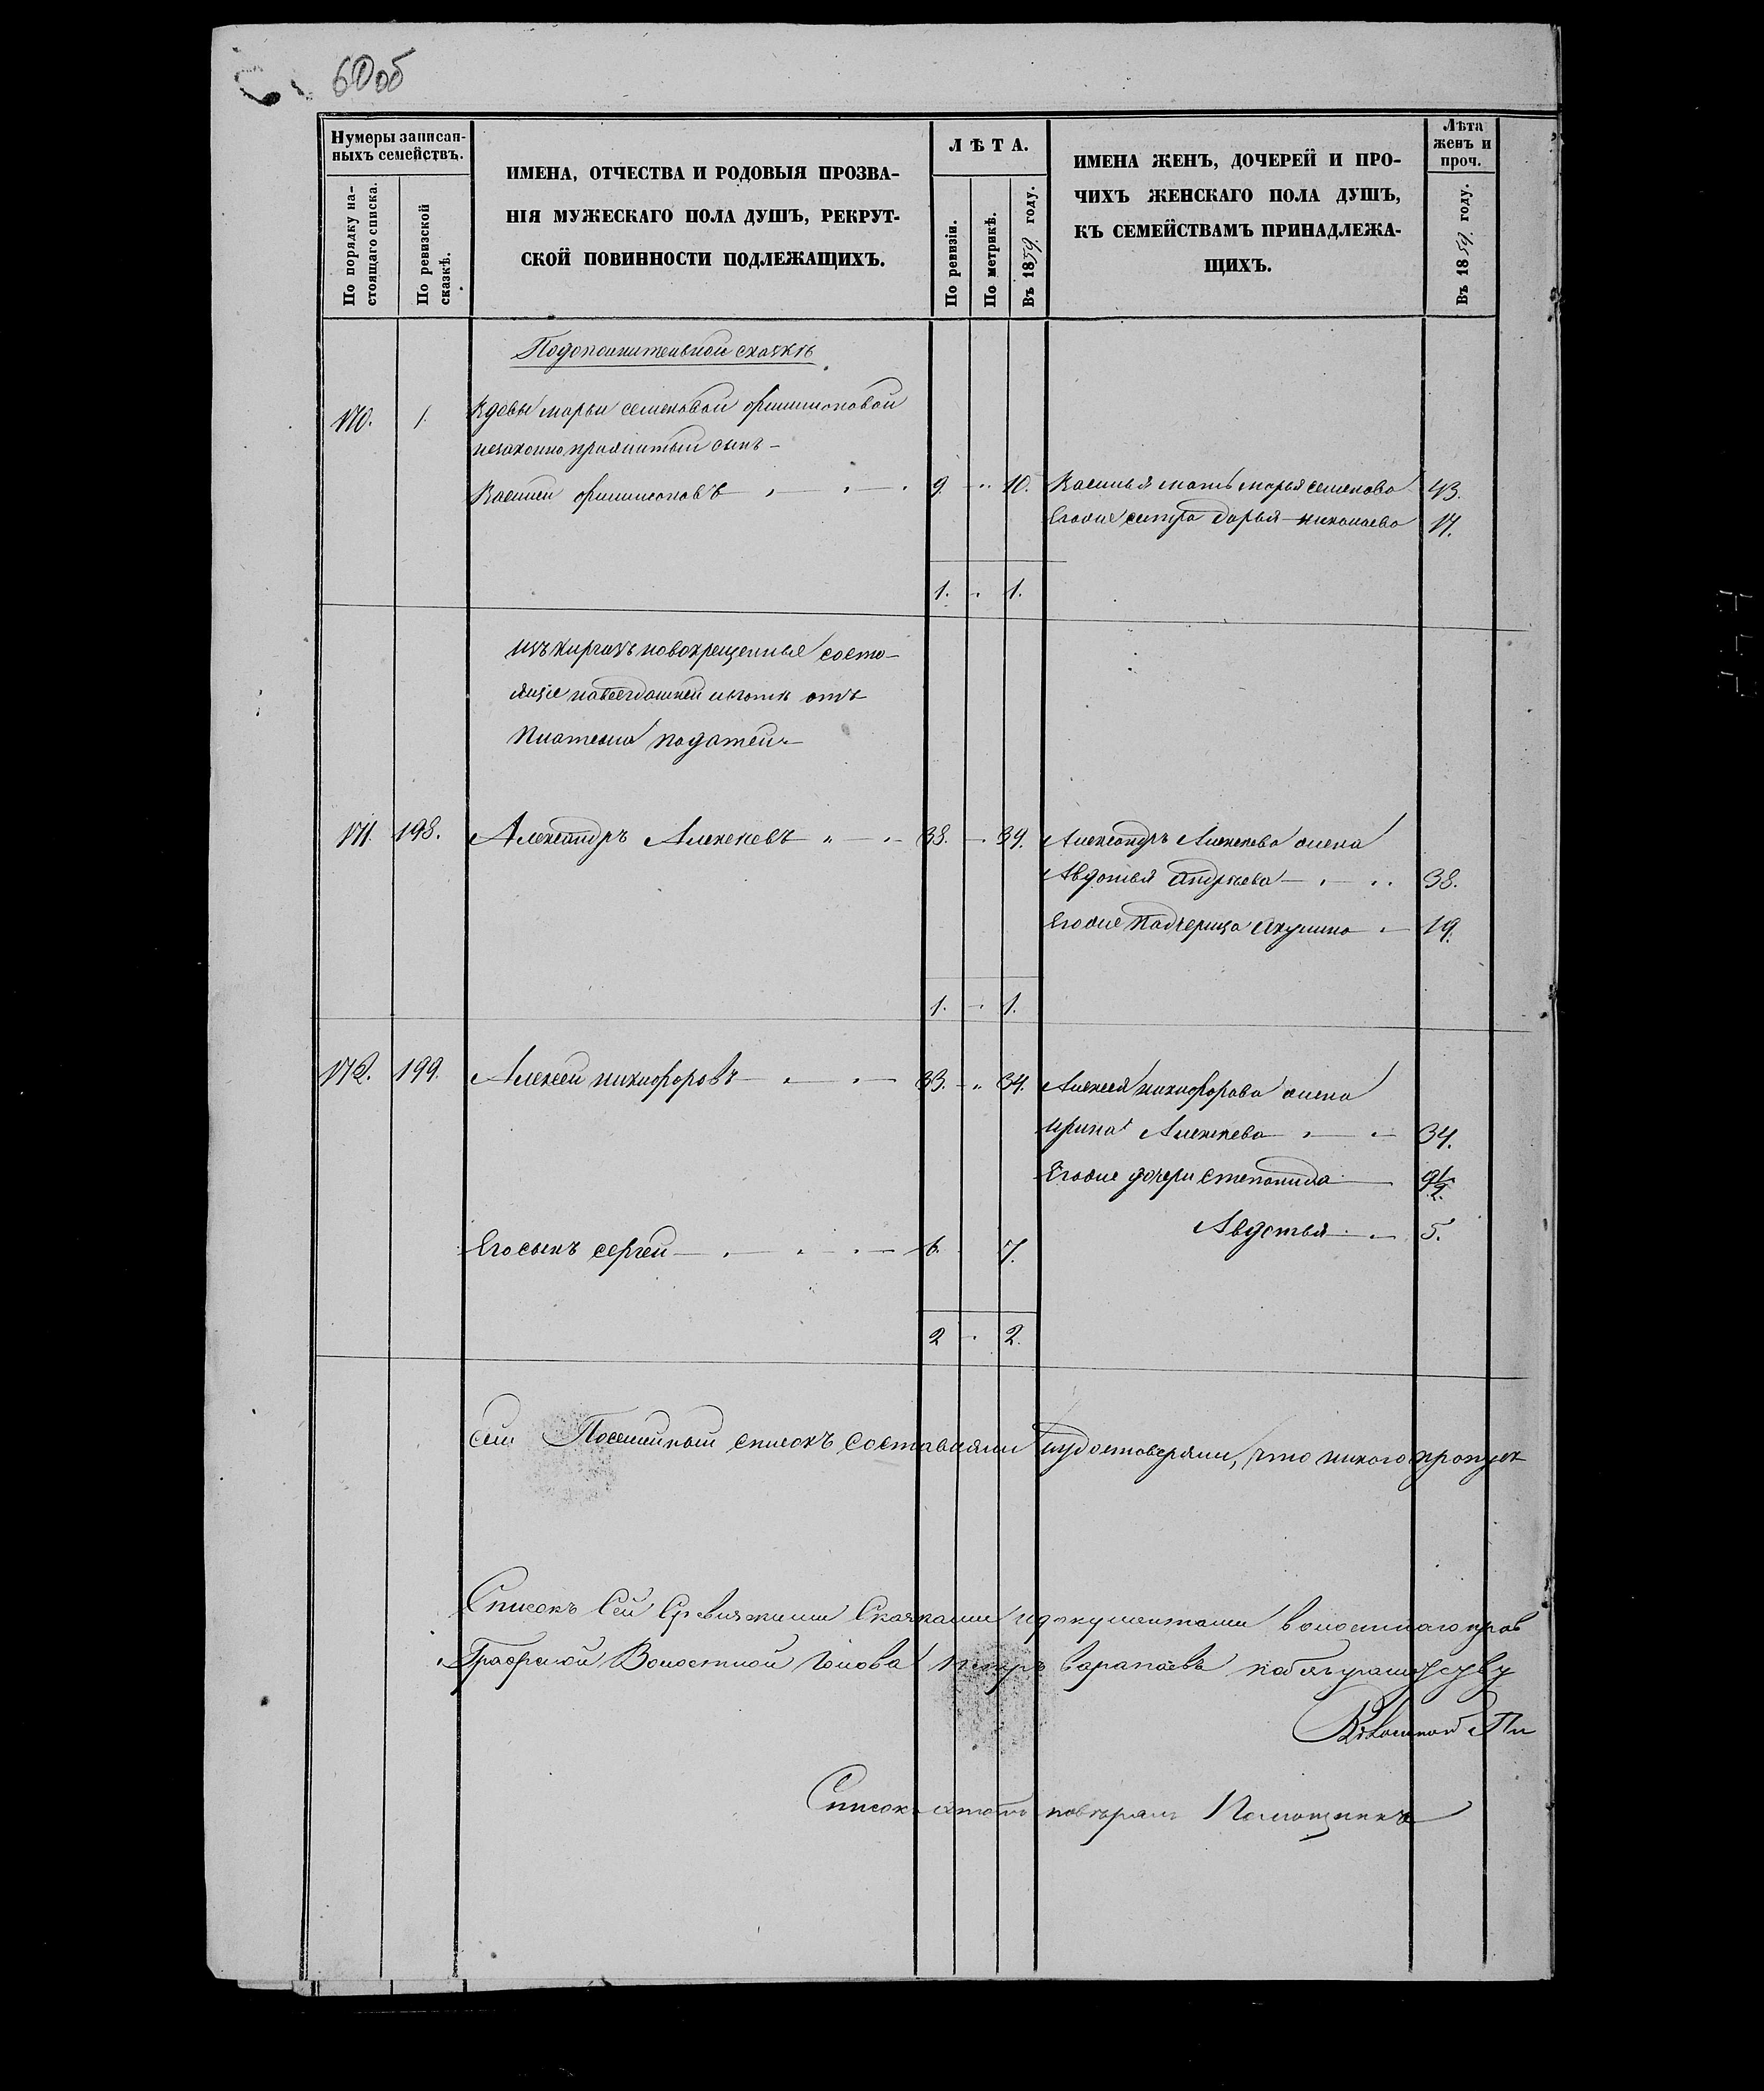 60об
Нумеры записан-
ныхъ семействъ.
По порядку на-
стоящаго списка.
По ревизской
сказкѣ.
ИМЕНА, ОТЧЕСТВА И РОДОВЫЯ ПРОЗВА-
НІЯ МУЖЕСКАГО ПОЛА ДУШЪ, РЕКРУТ-
СКОЙ ПОВИННОСТИ ПОДЛЕЖАЩИХЪ.
ЛѢТА.
По ревизіи.
По метрикѣ.
Въ 1859 году.
ИМЕНА ЖЕНЪ, ДОЧЕРЕЙ И ПРО-
ЧИХЪ ЖЕНСКАГО ПОЛА ДУШЪ,
КЪ СЕМЕЙСТВАМЪ ПРИНАДЛЕЖА-
ЩИХЪ.
Лѣта
женъ и
проч.
Въ 1859 году.
Подополнительной сказкѣ
170. 1. Вдовы марьи семеновой филипповой
незаконно прижитый сынъ
Василей филипповъ 9. 10. Васильи мать марья семенова 43.
Егоже сестра дарья николаева 17.
1. 1.
изъ киргизъ новокрещенные состо-
ящіе навсегдашней льготѣ отъ
платежа податей
171. 198. Александръ Алексеевъ 38. 39. Александръ Алексеева жена
Авдотья андреева 38.
Егоже падчерица Акулина 19.
1. 1.
172. 199. Алексей никифоровъ 33. 34. Алексея никифорова жена
ирина Алексеева 34.
Егоже дочери степанида 9½
Авдотья 5.
Его сынъ сергей 6. 7.
2 2.
Сей Посемейный списокъ составляли иудостоверяли, что никого пропуск
Списокъ Сей Сревизскими Сказками идокументами волостнаго прав
Графской Волостной Голова петръ варапаевъ
Волосной Пи
Списокъ этотъ повѣрялъ Помощникъ